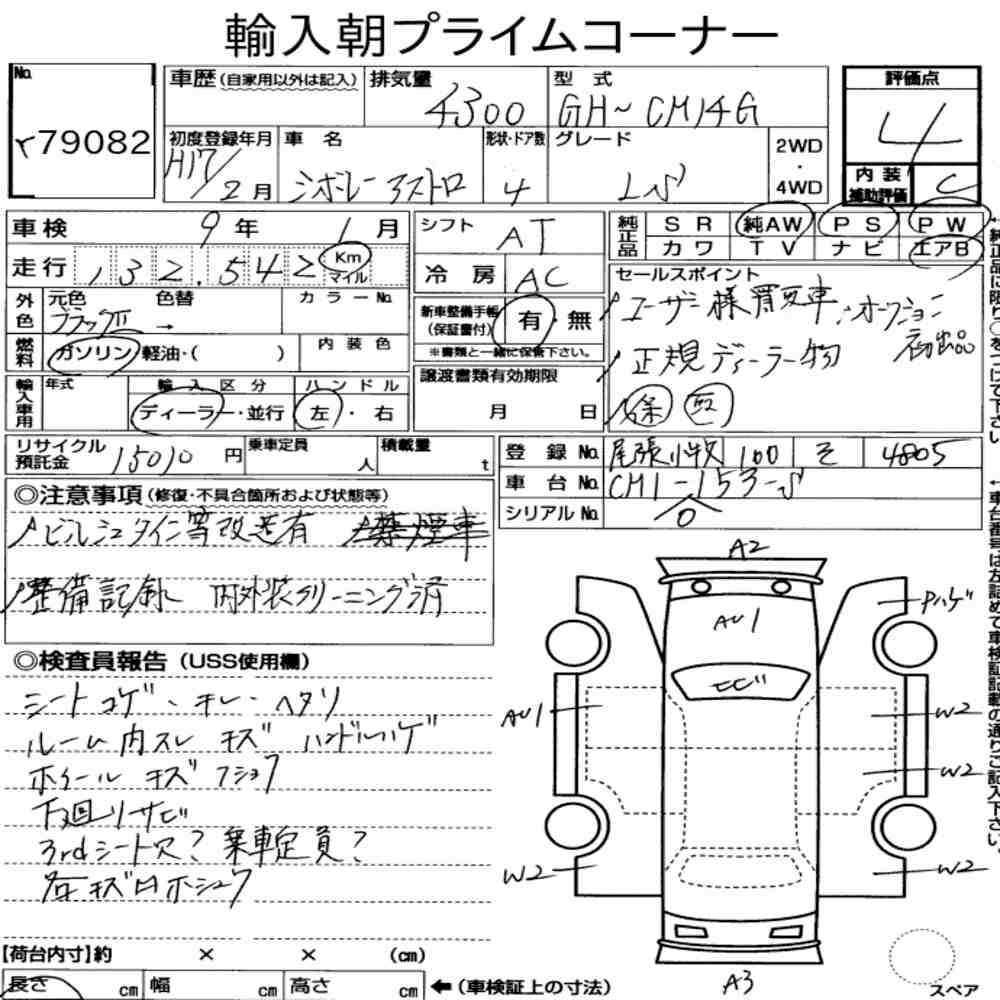 輸入朝プライムコーナー
No.
79082
車歴(自家用以外は記入)
排気量
4300
型 式
GH~ CM14G
評価点
4
初度登録年月
H17/2月
車 名
シボレーアストロ
形状・ドア数
4
グレード
LS
2WD
・
4WD
内 装
補助評価
C
車検 9年 1月
走行 132,542 Km
マイル
シフト AT
冷 房 AC
純正品
S R 純AW P S P W
カワ T V ナビ エアB
外色
元色 色替 カラーNo.
ブラックII →
燃料
ガソリン・軽油・( )
内 装 色
新車整備手帳
(保証書付)
有・無
※書類と一緒に保管下さい。
セールスポイント
ユーザー様買取車、オークション
初出品
正規ディーラー物
保 取
輸入車用
年式
輸 入 区 分
ディーラー・並行
ハ ン ド ル
左・右
譲渡書類有効期限
月 日
リサイクル
預託金
15010円
乗車定員
人
積載量
t
登 録 No. 尾張小牧 100 そ 4805
車 台 No. CM1-153-S
シリアル No. 0
◎注意事項(修復・不具合箇所および状態等)
ビルシュタイン等改造有 禁煙車
整備記録 内外装クリーニング済
◎検査員報告(USS使用欄)
シートコゲ、キレ、ヘタリ
ルーム内スレ キズ ハンドルハゲ
ホイール キズ フショク
下廻リサビ
3rdシート穴? 乗車定員?
各キズ凹ホシュウ
A2
AU1
ヒビ
Pハゲ
AU1
W2
W2
W2
W2
A3
スペア
【荷台内寸】約 × × (cm)
長さ cm 幅 cm 高さ cm
←(車検証上の寸法)
←純正品に限り○をつけて下さい
←車台番号は左詰めで車検証記載の通りご記入下さい。